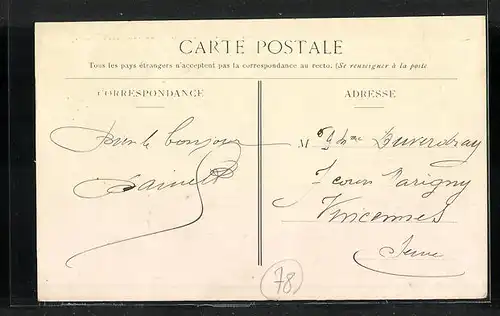 CARTE POSTALE
Tous les pays étrangers n'acceptent pas la correspondance au recto. (Se renseigner à la poste
CORRESPONDANCE
ADRESSE
bonjour
M
cours Marigny
Vincennes
Seine
78